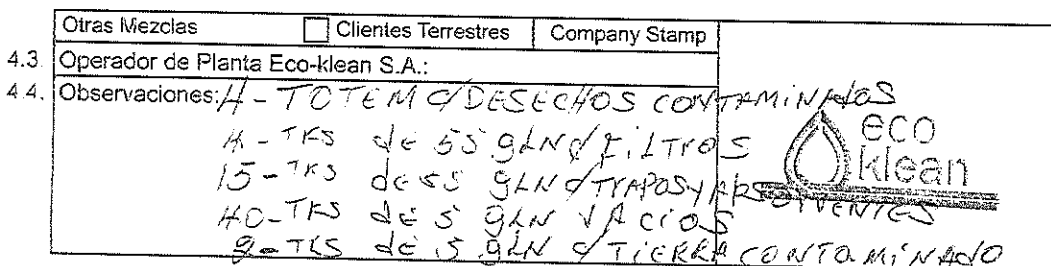 Otras Mezclas Clientes Terrestres Company Stamp
4.3. Operador de Planta Eco-klean S.A.:
4.4. Observaciones: 4 - TOTEM C/DESECHOS CONTAMINADOS
4 - TKS de 55 GLN C/FILTROS
15 - TKS de 55 GLN C/TRAPOS Y ABSORVENTES
40 - TKS de 5 GLN VACIOS
9 - TKS de 5 GLN C/TIERRA CONTAMINADO
eco
klean